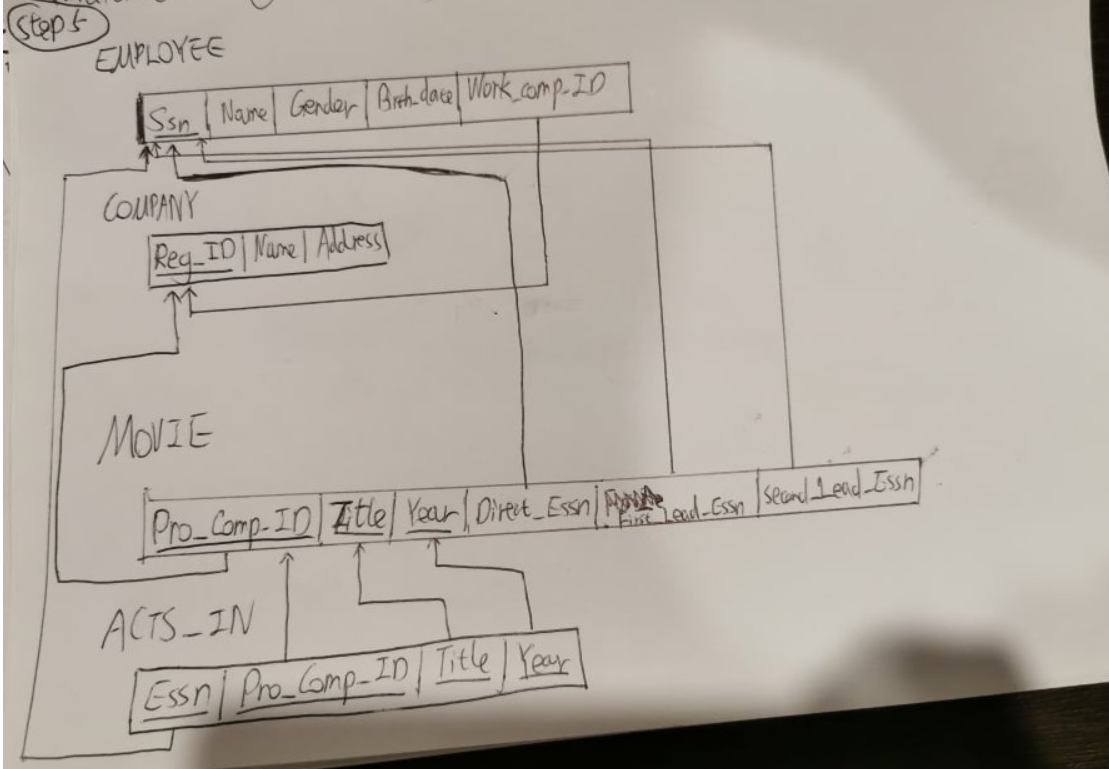 Step 5
EMPLOYEE
Ssn Name Gender Birth_date Work_comp_ID
COMPANY
Reg_ID Name Address
MOVIE
Pro_Comp_ID Title Year Direct_Essn First_Lead_Essn second_Lead_Essn
ACTS_IN
Essn Pro_Comp_ID Title Year